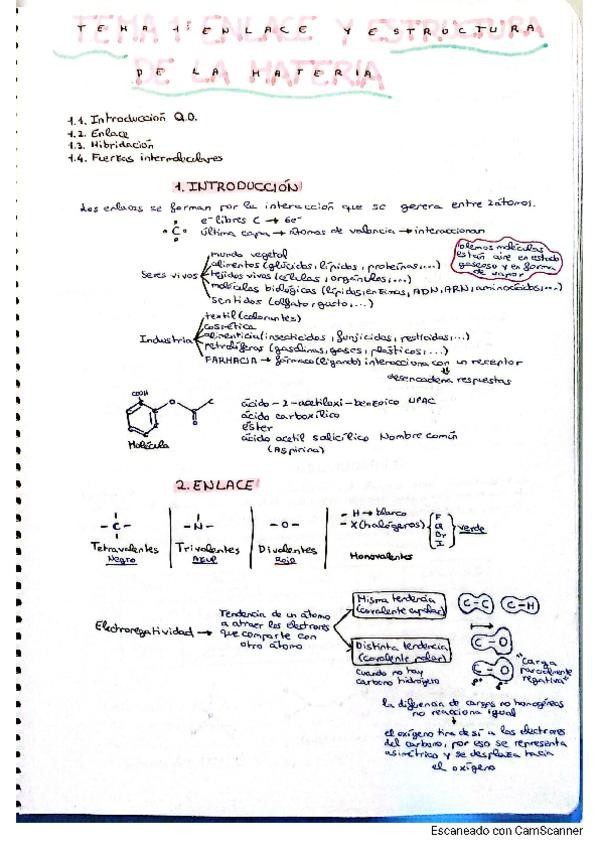 TEMA 1: ENLACE Y ESTRUCTURA
DE LA MATERIA
1.1. Introducción Q.O.
1.2. Enlace
1.3. Hibridación
1.4. Fuerzas intermoleculares
1. INTRODUCCIÓN
Los enlaces se forman por la interacción que se genera entre 2 átomos.
·C· e⁻ libres C → 6e⁻
última capa → átomos de valencia → interaccionan
olemos moléculas
están aire en estado
gaseoso y en forma
de vapor
Seres vivos
mundo vegetal
alimentos (glúcidos, lípidos, proteínas,...)
tejidos vivos (células, orgánulos,...)
moléculas biológicas (lípidos, enzimas, ADN, ARN, aminoácidos,...)
sentidos (olfato, gusto,...)
Industria
textil (colorantes)
cosmética
alimenticia (insecticidas, funjicidas, pesticidas,...)
petrolíferas (gasolinas, gases, plásticos,...)
FARMACIA → fármaco (ligando) interacciona con un receptor
desencadena respuestas
COOH
O
O
Molécula
ácido-2-acetiloxi-benzoico UPAC
ácido carboxílico
éster
ácido acetil salicílico Nombre común
(Aspirina)
2. ENLACE
-C-
Tetravalentes
Negro
-N-
Trivalentes
Azul
-O-
Divalentes
Rojo
- H → blanco
- X (halógenos) F Cl Br I verde
Monovalentes
Electronegatividad →
Tendencia de un átomo
a atraer los electrones
que comparte con
otro átomo
Misma tendencia
(covalente apolar)
C-C C-H
Distinta tendencia
(covalente polar)
cuando no hay
carbono hidrógeno
C-O
C-O
"Carga
parcialmente
negativa"
la diferencia de cargas no homogéneas
no reacciona igual
el oxígeno tira de sí a los electrones
del carbono, por eso se representa
asimétrico y se desplaza hacia
el oxígeno
Escaneado con CamScanner